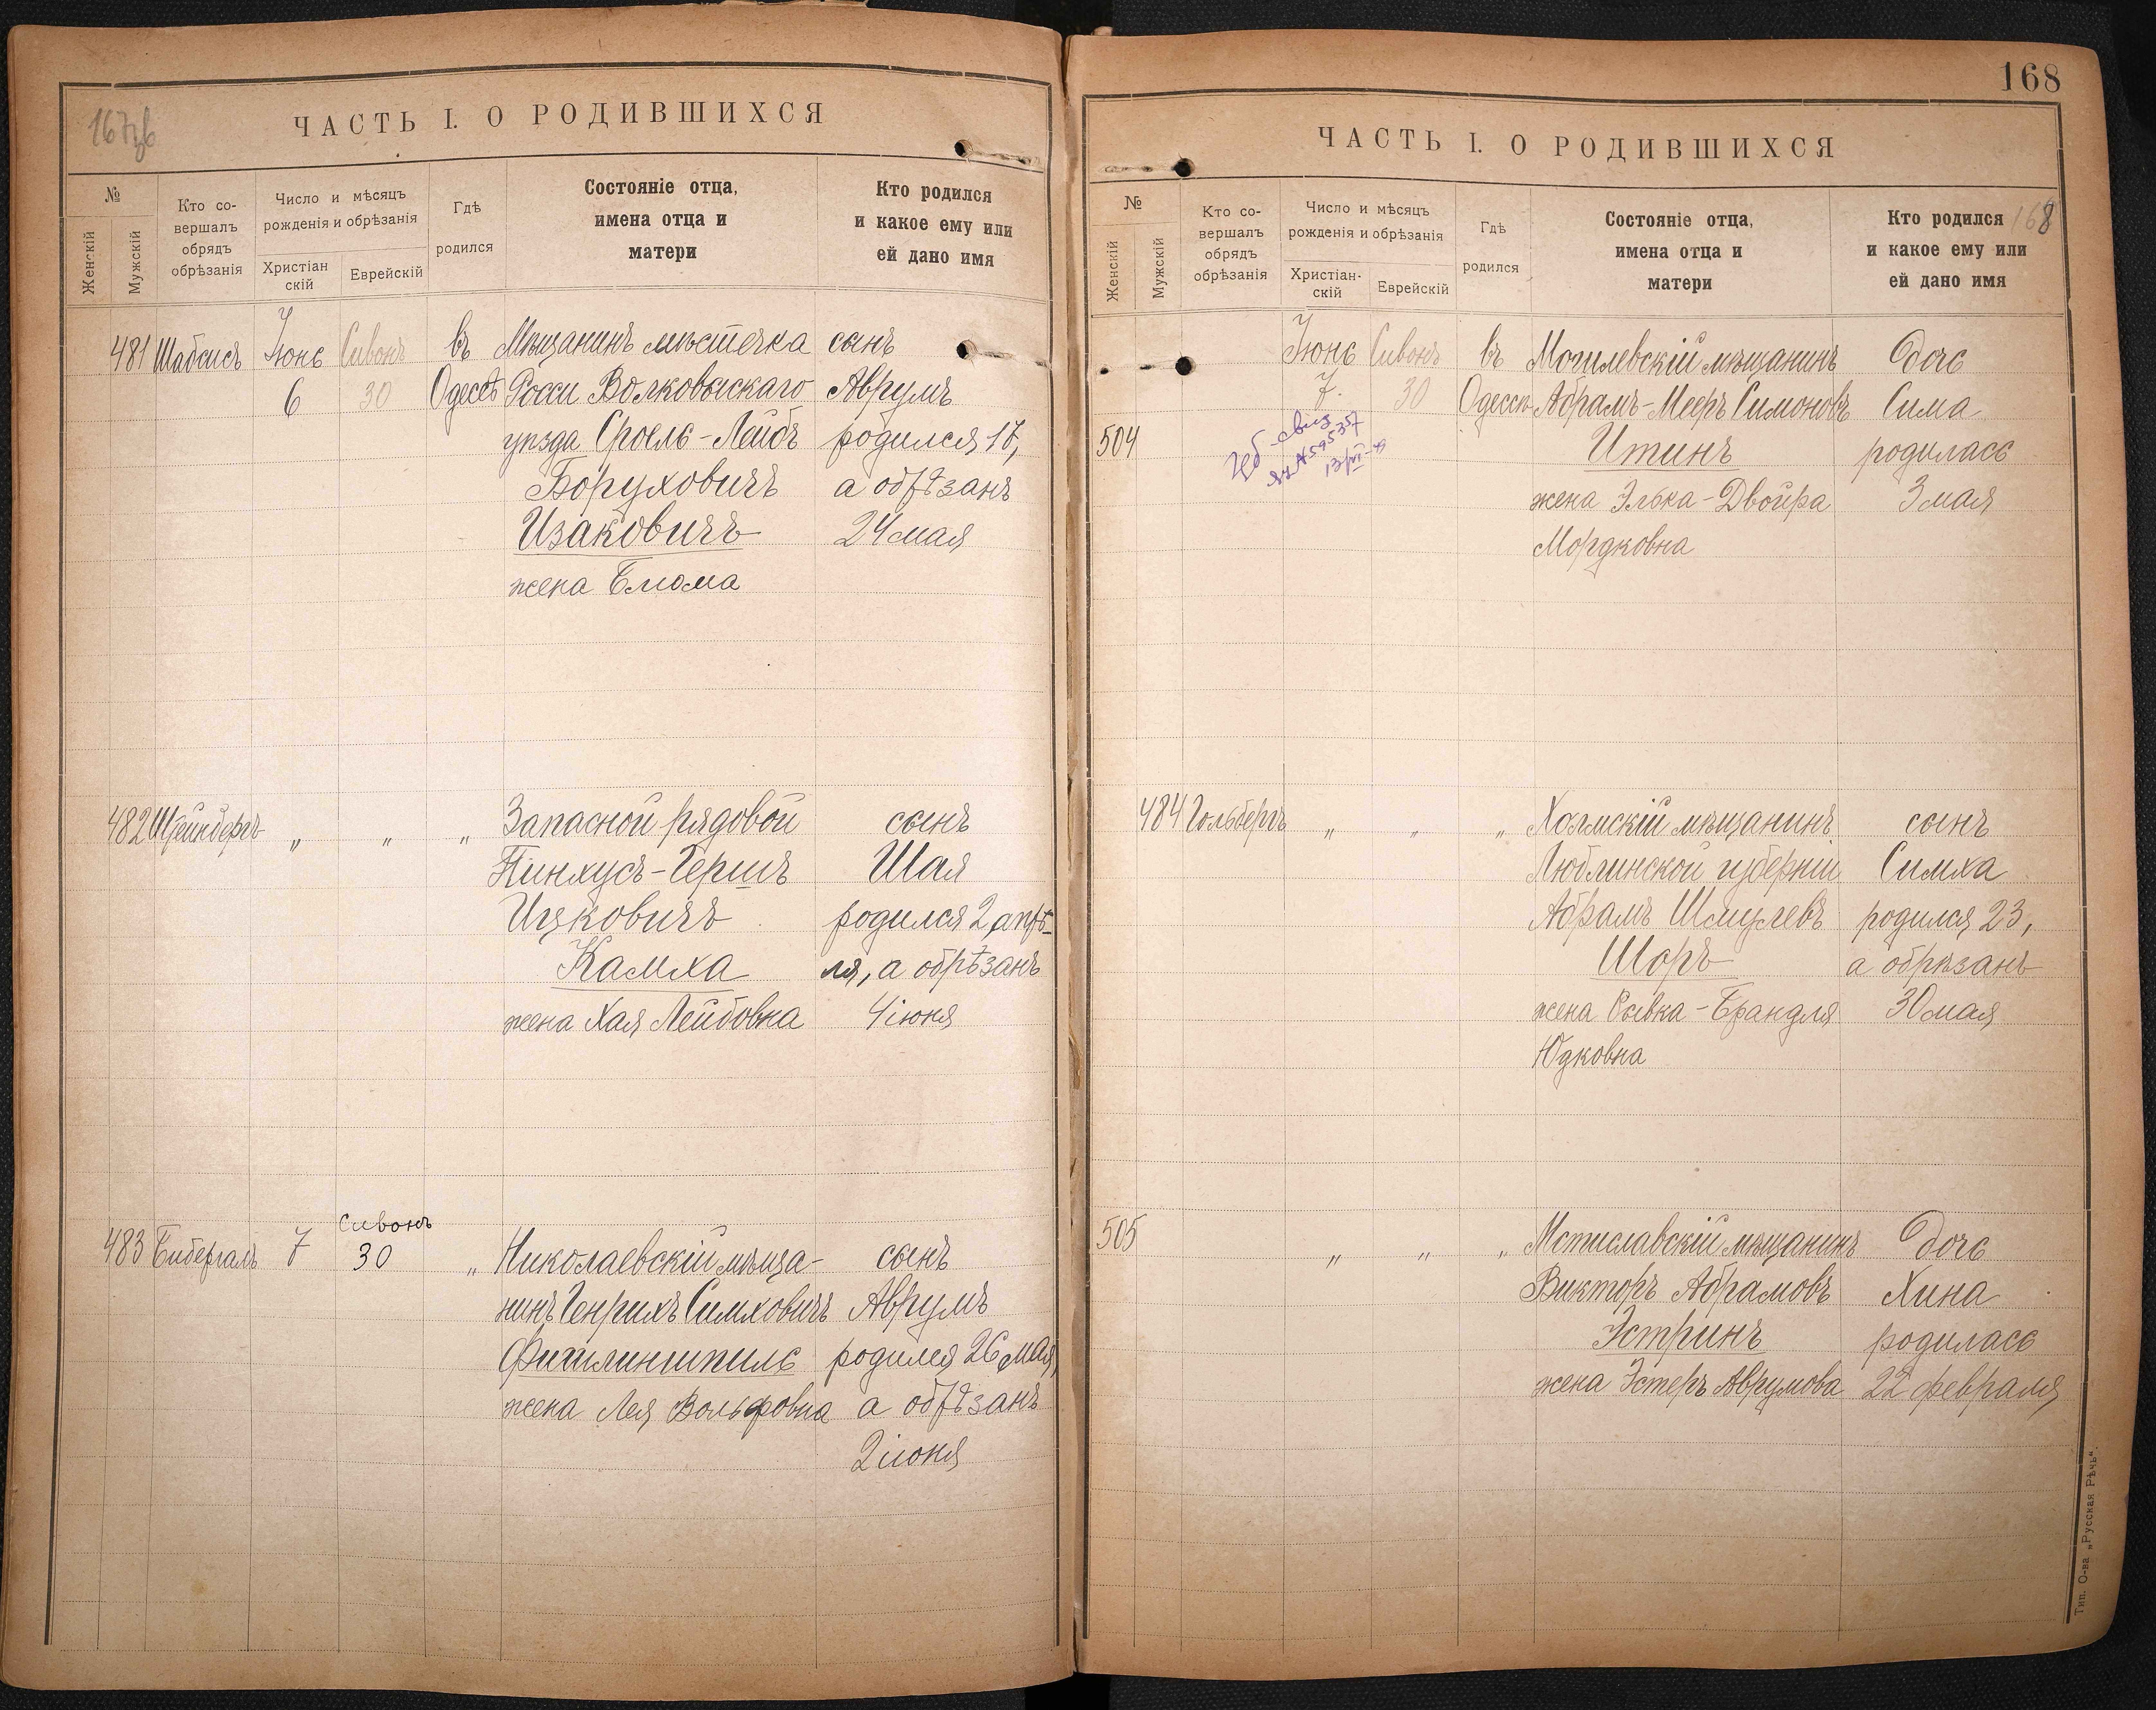 167 зв
ЧАСТЬ I. О РОДИВШИХСЯ
№
Женскій
Мужскій
Кто со-
вершалъ
обрядъ
обрѣзанія
Число и мѣсяцъ
рожденія и обрѣзанія
Христіан
скій
Еврейскій
Гдѣ
родился
Состояніе отца,
имена отца и
матери
Кто родился
и какое ему или
ей дано имя
481 Шабсисъ Іюнь Сивонъ въ Мѣщанинъ мѣстечка сынъ
6 30 Одессѣ Росси Волковыскаго Аврумъ
уѣзда Сроель-Лейбъ родился 17,
Боруховичъ а обрѣзанъ
Изаковичъ 24 мая
жена Блюма
482 Штейнбергъ „ „ „ Запасной рядовой сынъ
Пинхусъ-Гершъ Шая
Ицковичъ родился 2 апрѣ-
Камха ля, а обрѣзанъ
жена Хая Лейбовна 4 іюня
Сивонъ
483 Бибергалъ 7 30 „ Николаевскій мѣща- сынъ
нинъ Генрихъ Симховичъ Аврумъ
Фитлиншпиль родился 26 мая,
жена Лея Вольфовна а обрѣзанъ
2 іюня
168
ЧАСТЬ I. О РОДИВШИХСЯ
№
Женскій
Мужскій
Кто со-
вершалъ
обрядъ
обрѣзанія
Число и мѣсяцъ
рожденія и обрѣзанія
Христіан-
скій
Еврейскій
Гдѣ
родился
Состояніе отца,
имена отца и
матери
Кто родился 168
и какое ему или
ей дано имя
Іюнь Сивонъ въ Могилевскій мѣщанинъ дочь
7. 30 Одессѣ Абрамъ-Мееръ Симоновъ Сима
504 Итинъ родилась
жена Элька-Двойра 3 мая
Мордковна
484 Гольбергъ „ „ „ Холмскій мѣщанинъ сынъ
Люблинской губерніи Симха
Абрамъ Шмулевъ родился 23,
Шоръ а обрѣзанъ
жена Рывка-Брандля 30 мая
Юдковна
505 „ „ „ Мстиславскій мѣщанинъ дочь
Викторъ Абрамовъ Хина
Эстринъ родилась
жена Эстеръ Аврумова 22 февраля
Тип. О-ва „Русская Рѣчь“.